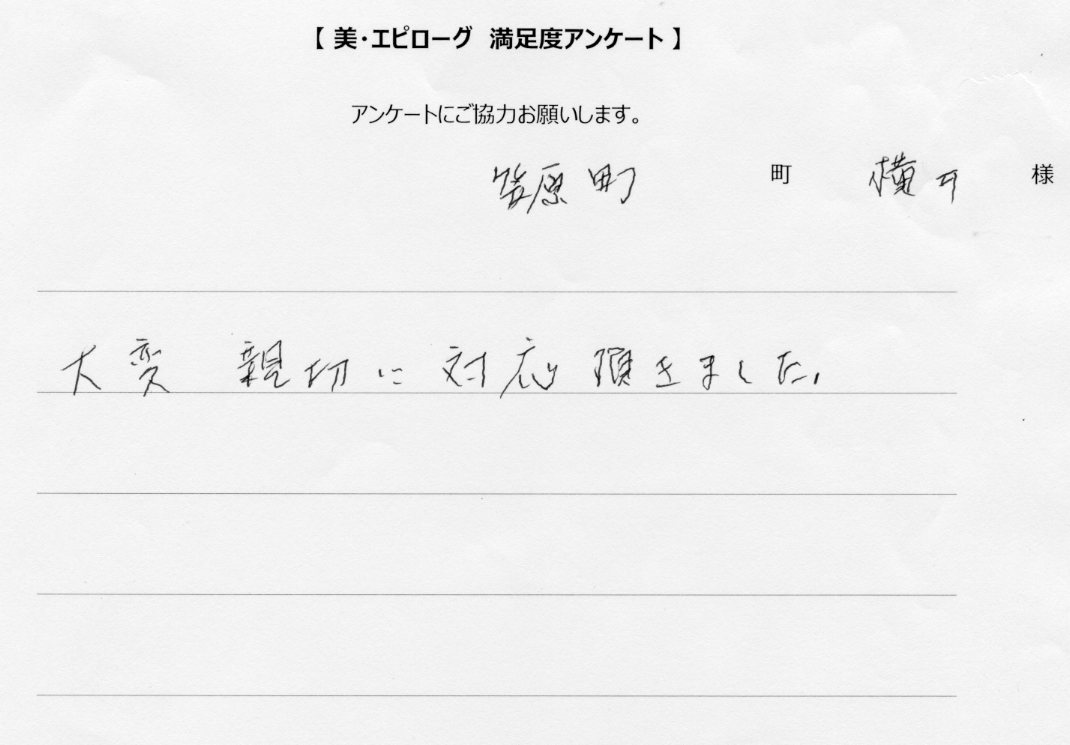 【 美・エピローグ 満足度アンケート 】
アンケートにご協力お願いします。
笠原町 町 横井 様
大変 親切に 対応 頂きました。